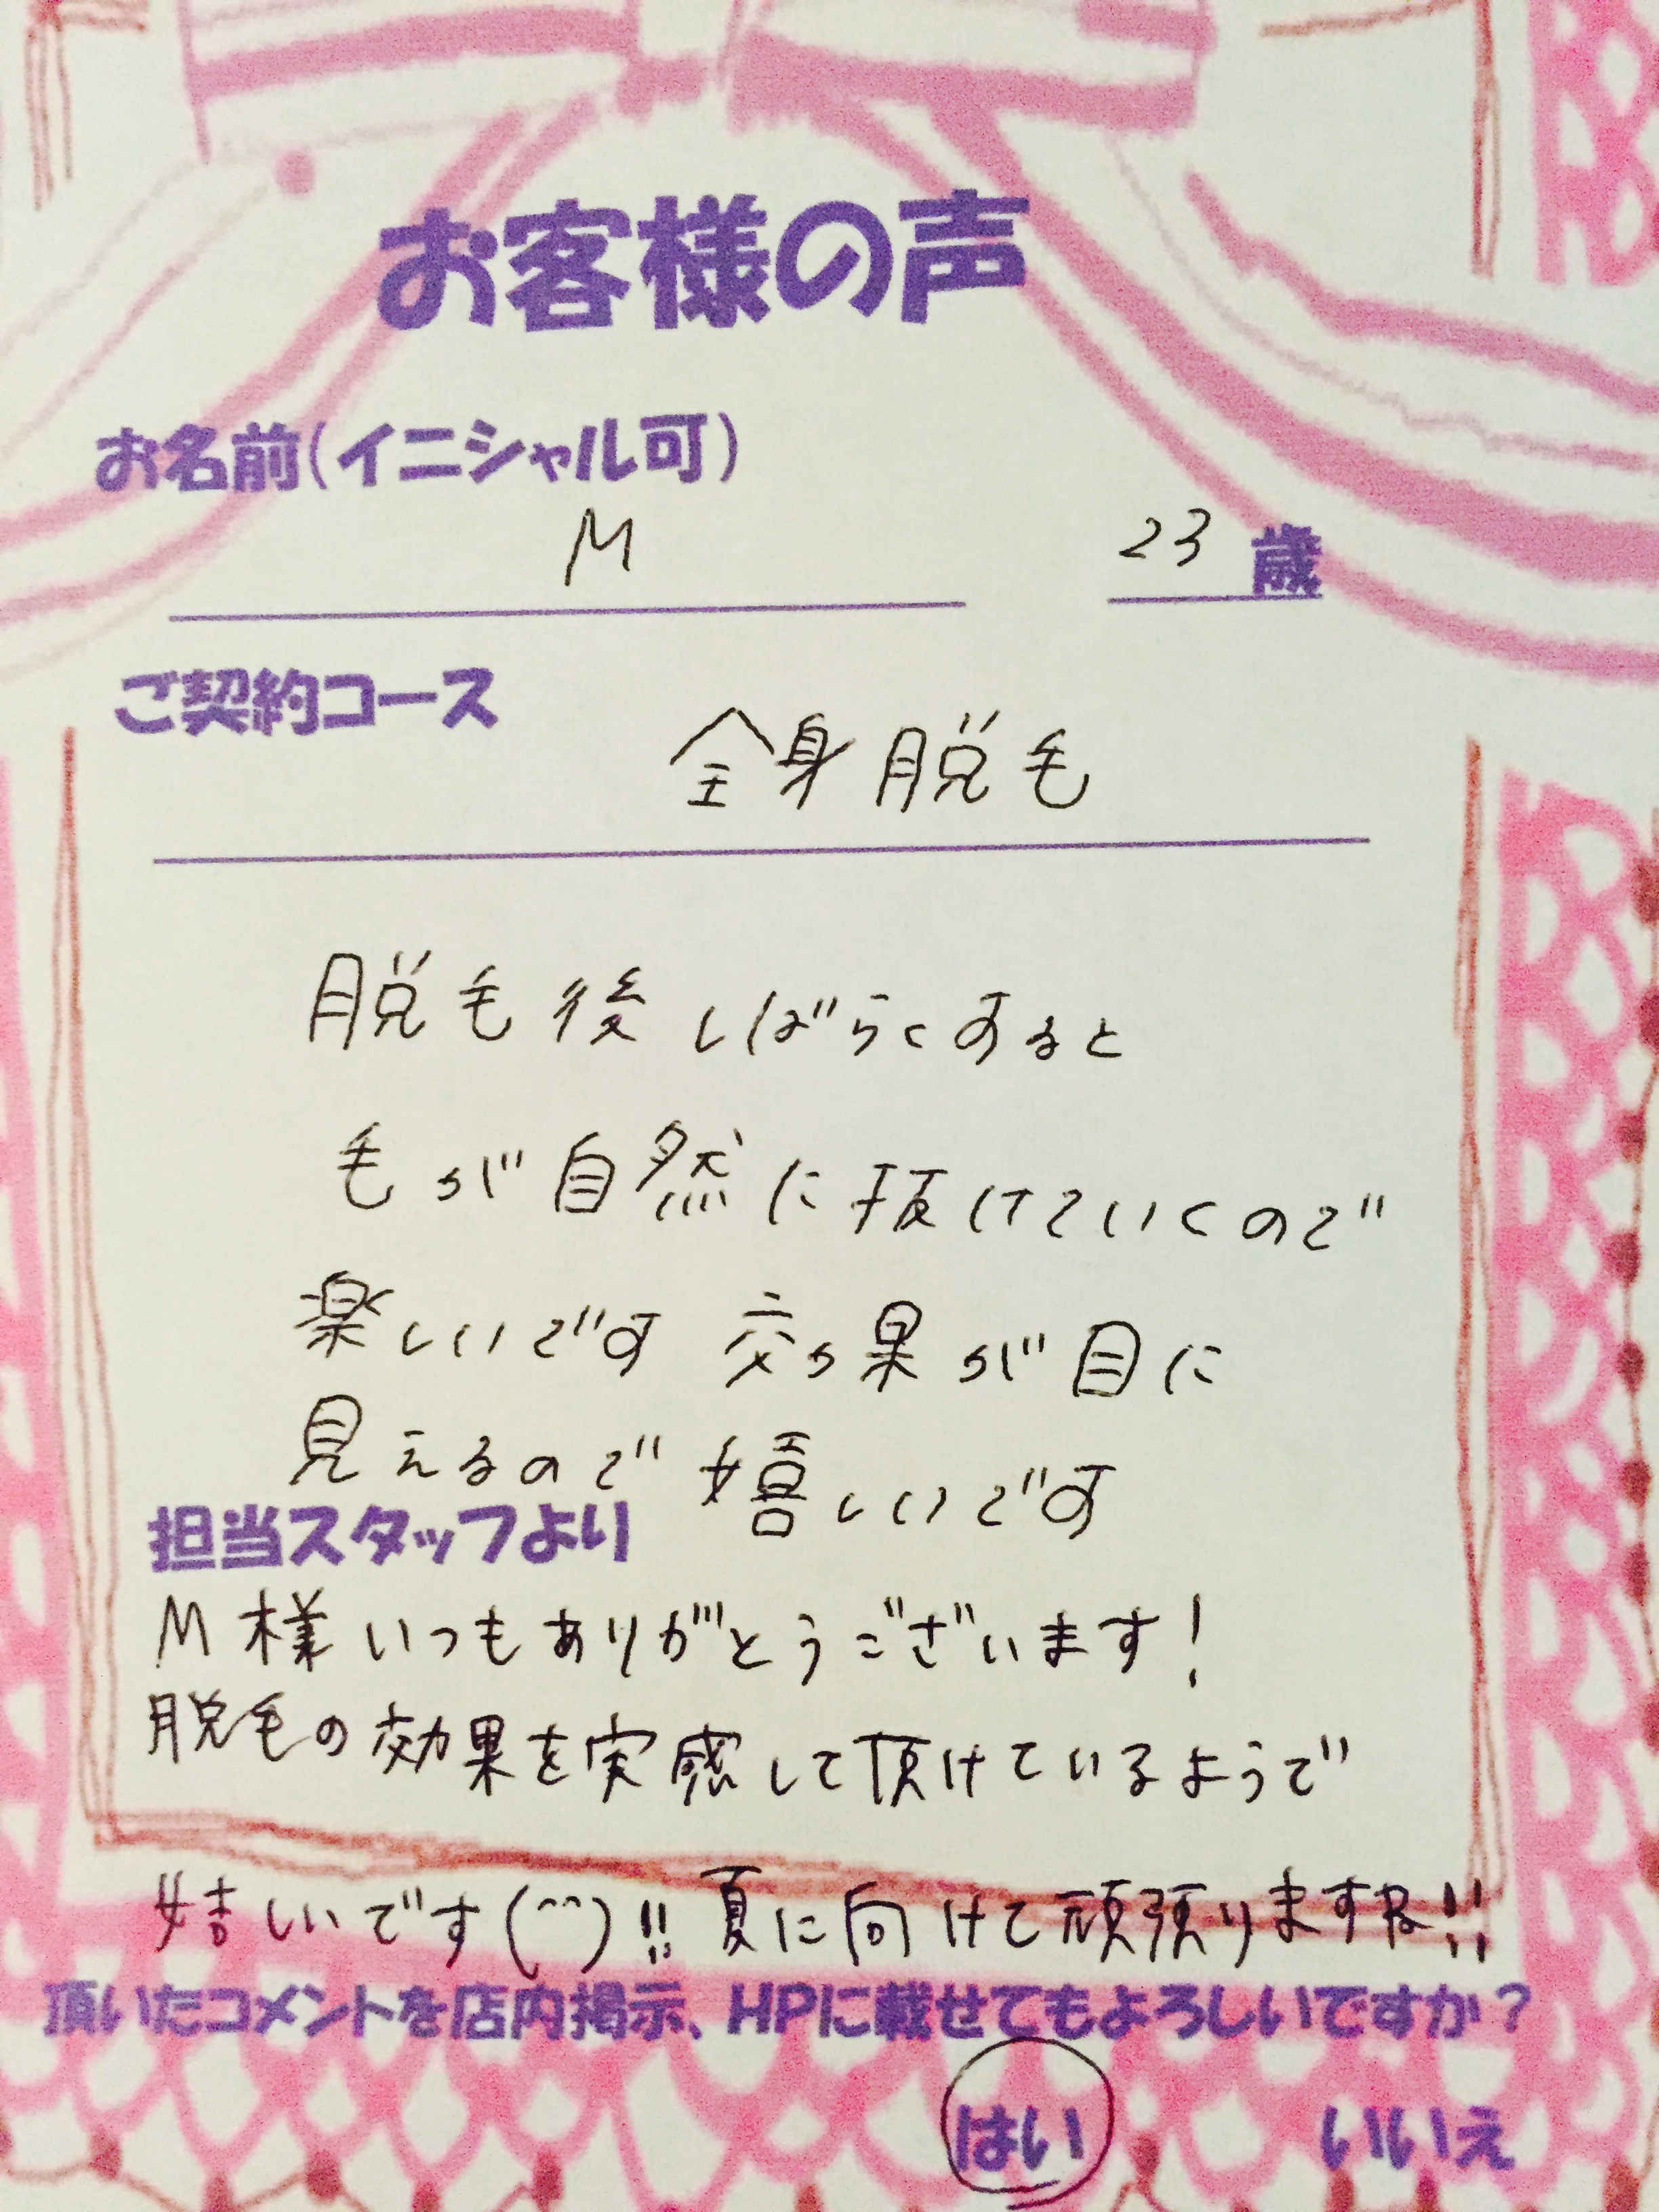 お客様の声
お名前(イニシャル可)
M 23歳
ご契約コース
全身脱毛
脱毛後しばらくすると
毛が自然に抜けていくので
楽しいです 効果が目に
見えるので嬉しいです
担当スタッフより
M様いつもありがとうございます!
脱毛の効果を実感して頂けているようで
嬉しいです(^^)!! 夏に向けて頑張りますね!!
頂いたコメントを店内掲示、HPに載せてもよろしいですか?
はい いいえ